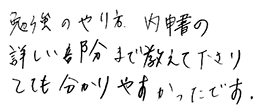 勉強のやり方、内申書の
詳しい部分まで教えて下さり
とても分かりやすかったです。